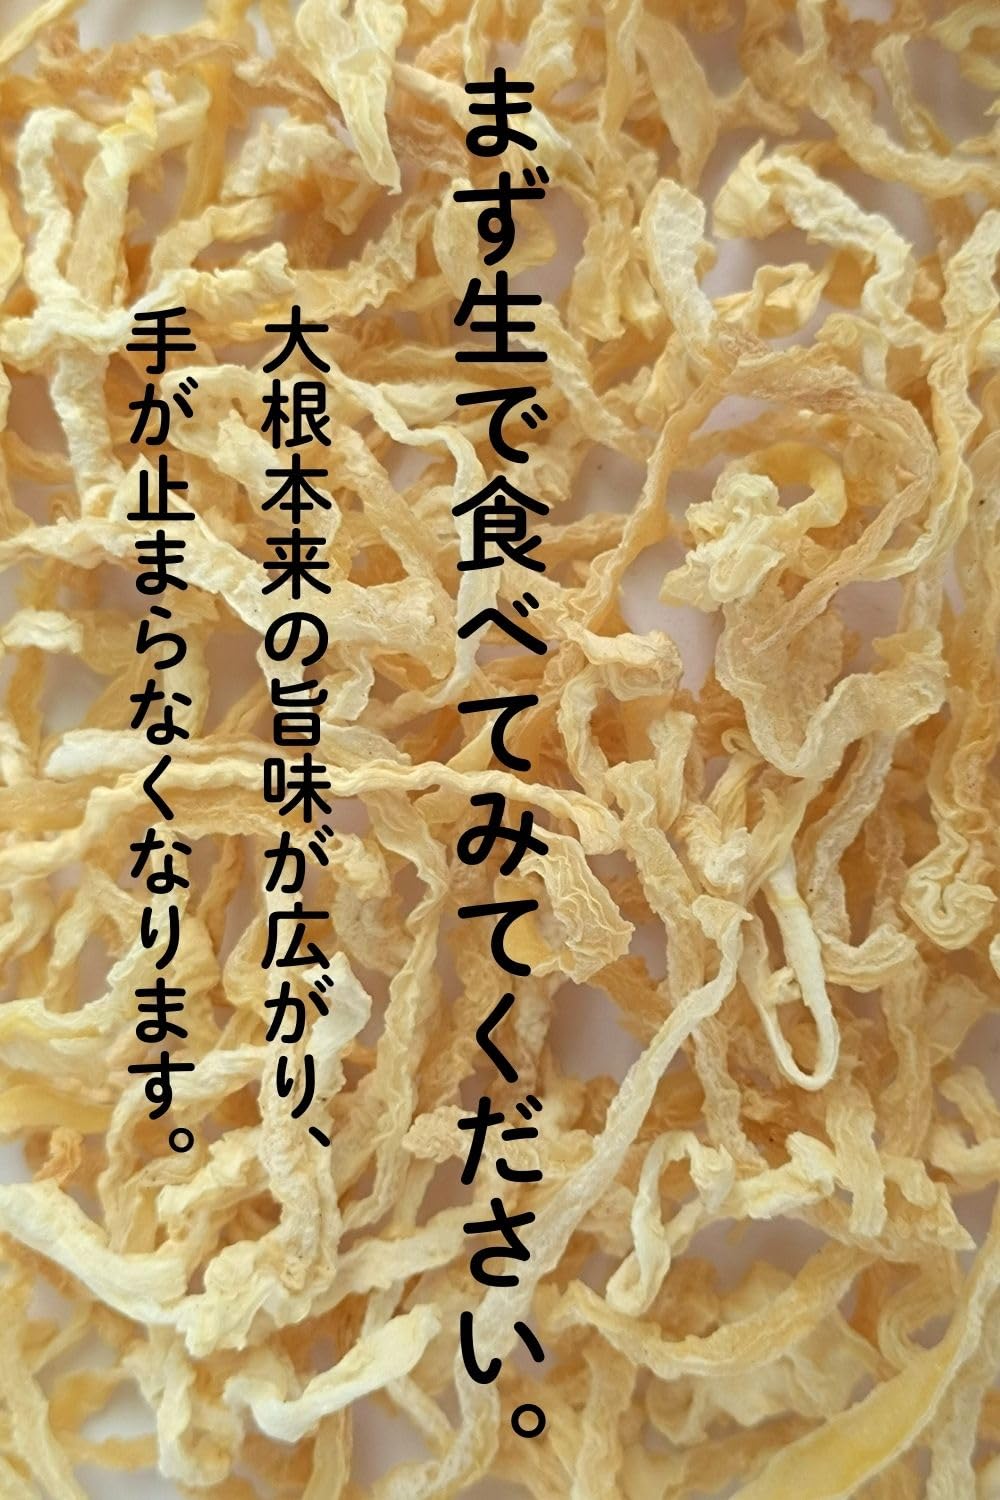 まず生で食べてみてください。
大根本来の旨味が広がり、
手が止まらなくなります。